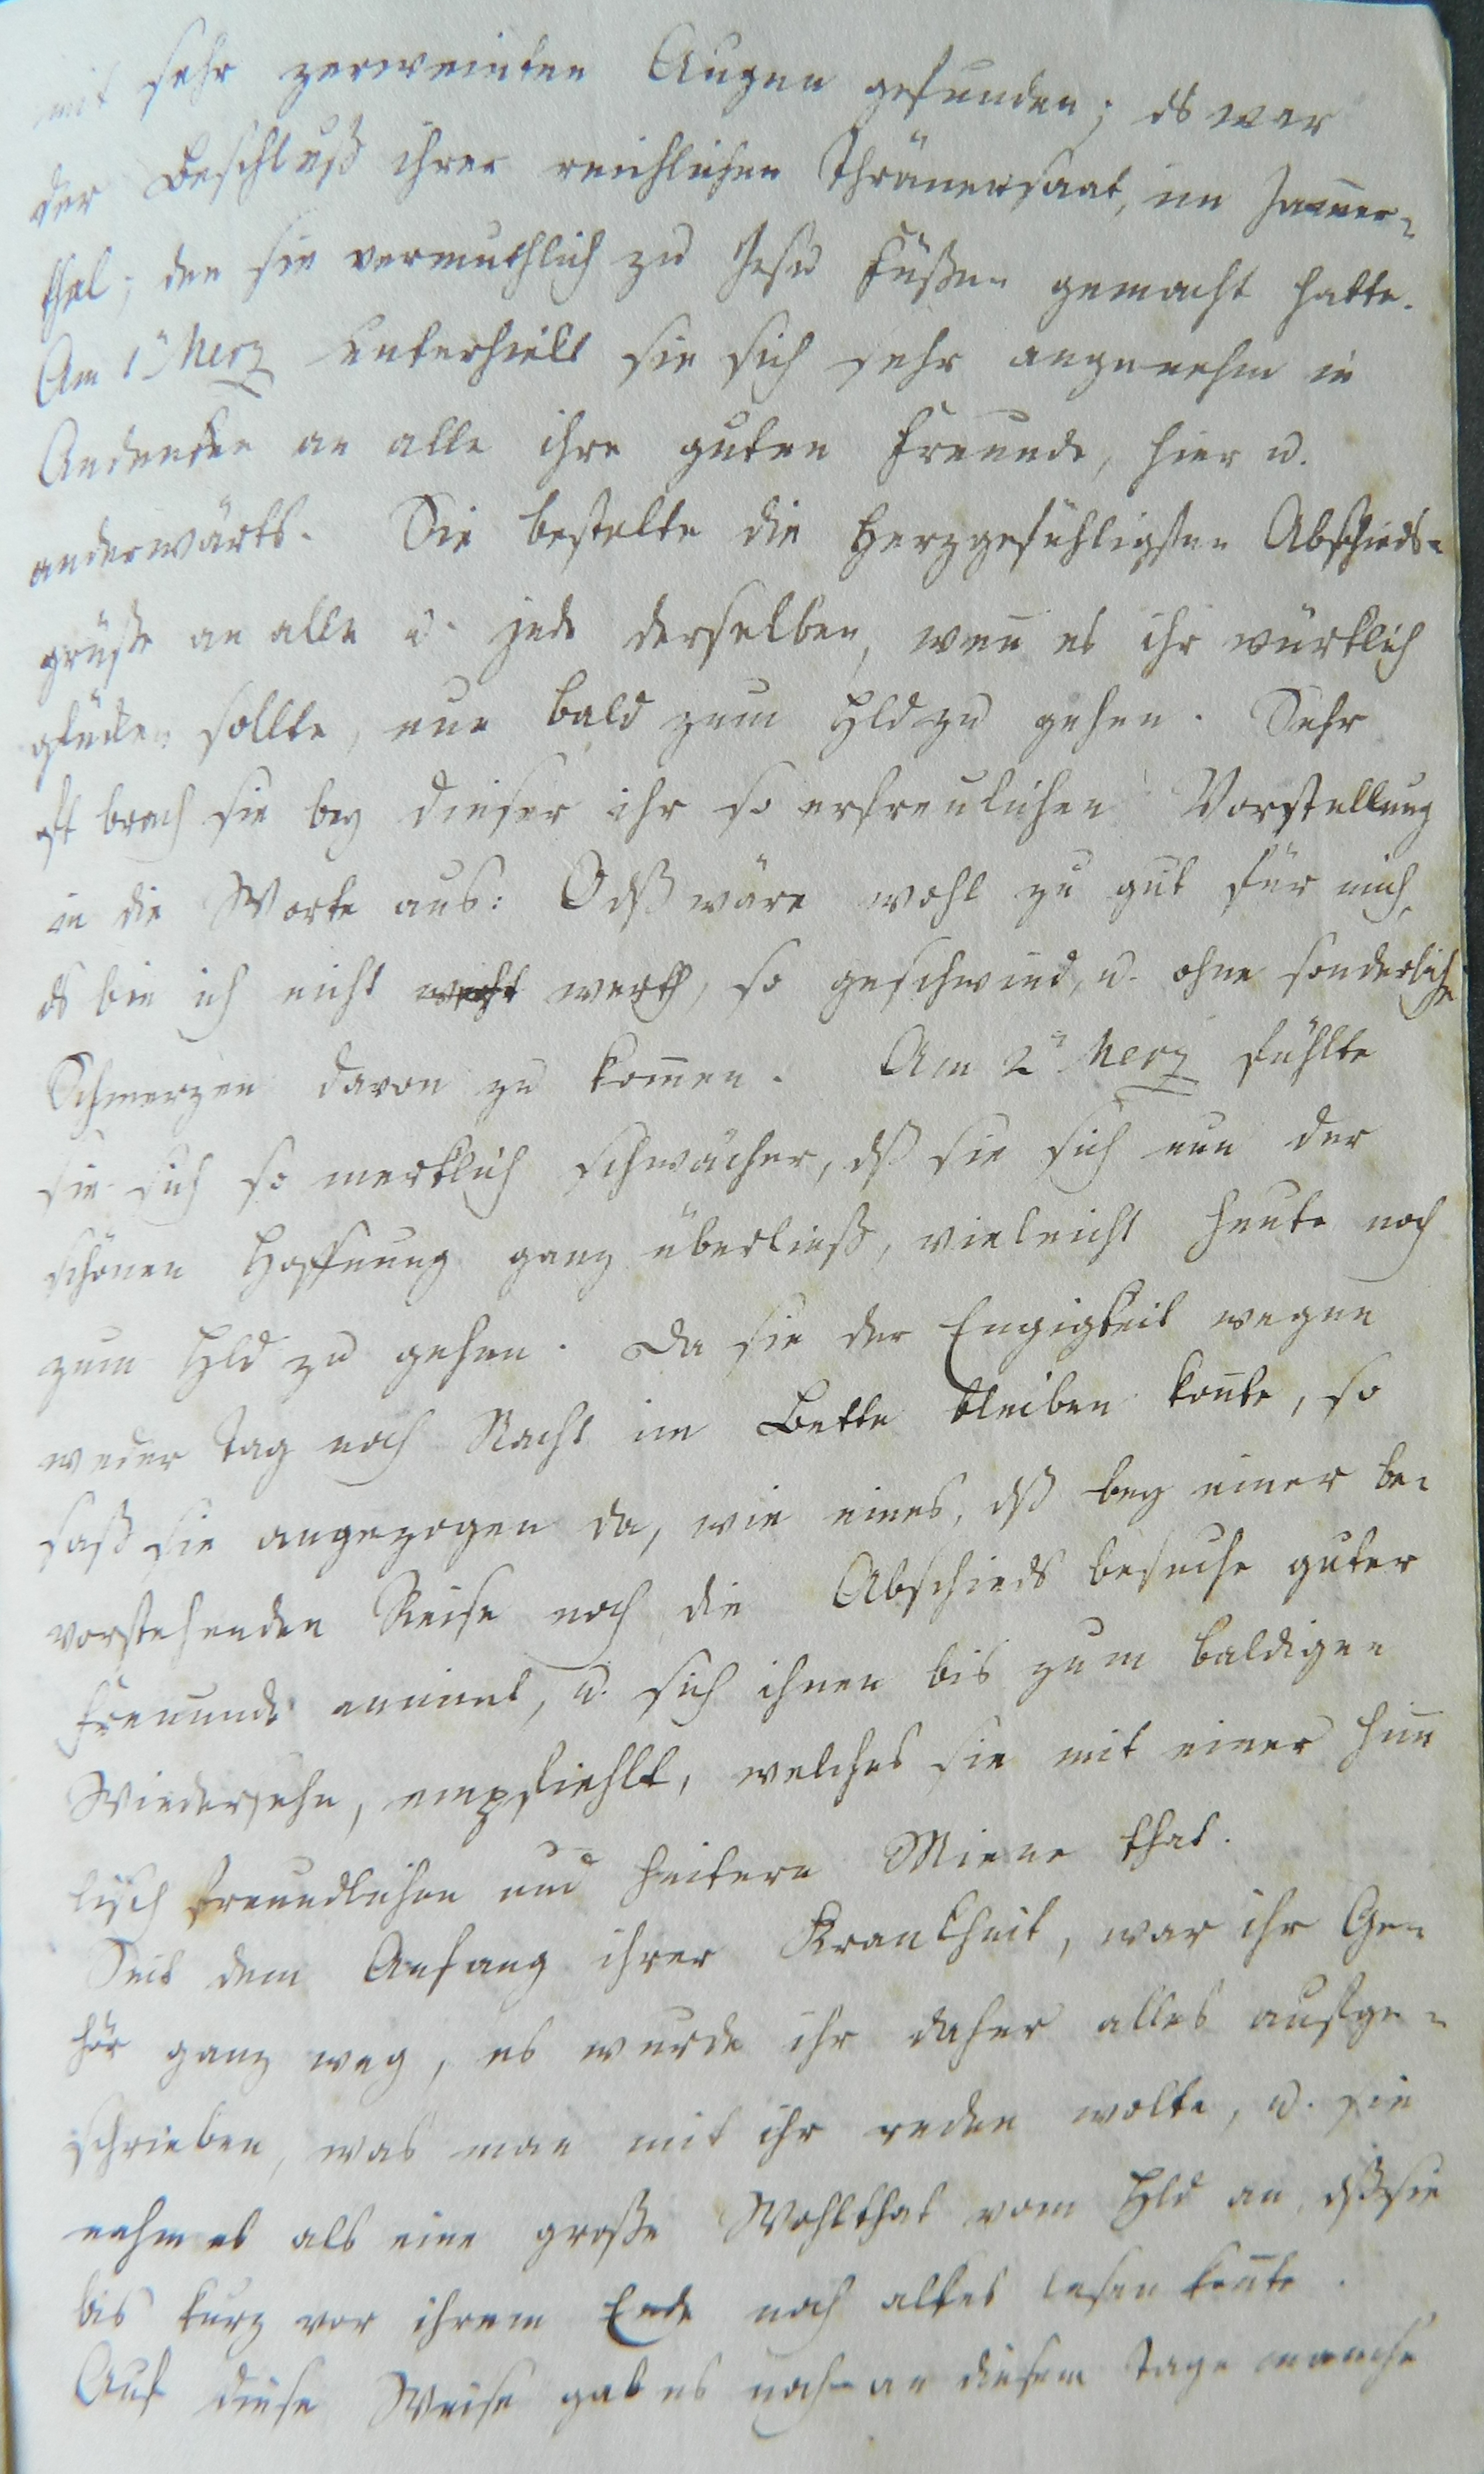 mit sehr zerweinten Augen gefunden; ds war
der Beschluß ihrer reichlichen Thränensaat, im Jam̄er-
thal; den sie vermuthlich zu Jesu Füßen gemacht hatte.
Am 1n Merz unterhielt sie sich sehr angenehm in
Andencken an alle ihre guten Freunde, hier u.
anderwärts. Sie bestelte die Herzgefühligsten Abschieds-
grüße an alle u. jede derselben, wen̄ es ihr würklich
glücken sollte, nun bald zum Hld zu gehen. Sehr
oft brach sie bey dieser ihr so erfreulichen Vorstellung
in die Worte aus: O dß wäre wohl zu gut für mich,
ds bin ich nicht werth, so geschwind, u. ohne sonderliche
Schmerzen davon zu kom̄en. Am 2n Merz fühlte
sie sich so merklich schwächer, dß sie sich nun der
schönen Hoffnung ganz überließ, vieleicht heute noch
zum Hld zu gehen. Da sie der Engigkeit wegen
weder Tag noch Nacht im Bette bleiben kon̄te, so
saß sie angezogen da, wie eines, dß bey einer be-
vorstehenden Reise noch die Abschieds besuche guter
Freunde annimt, u. sich ihnen bis zum baldigen
Wiedersehn, empfiehlt, welches sie mit einer him̄
lisch freundlichen und heitern Miene that.
Seit dem Anfang ihrer Krankheit, war ihr Ge-
hör ganz weg, es wurde ihr daher alles aufge-
schrieben, was man mit ihr reden wolte, u. sie
nahm es als eine große Wohlthat vom Hld an, dß sie
bis kurz vor ihrem Ende noch alles lesen kon̄te.
Auf diese Weise gab es noch an diesem Tage manche